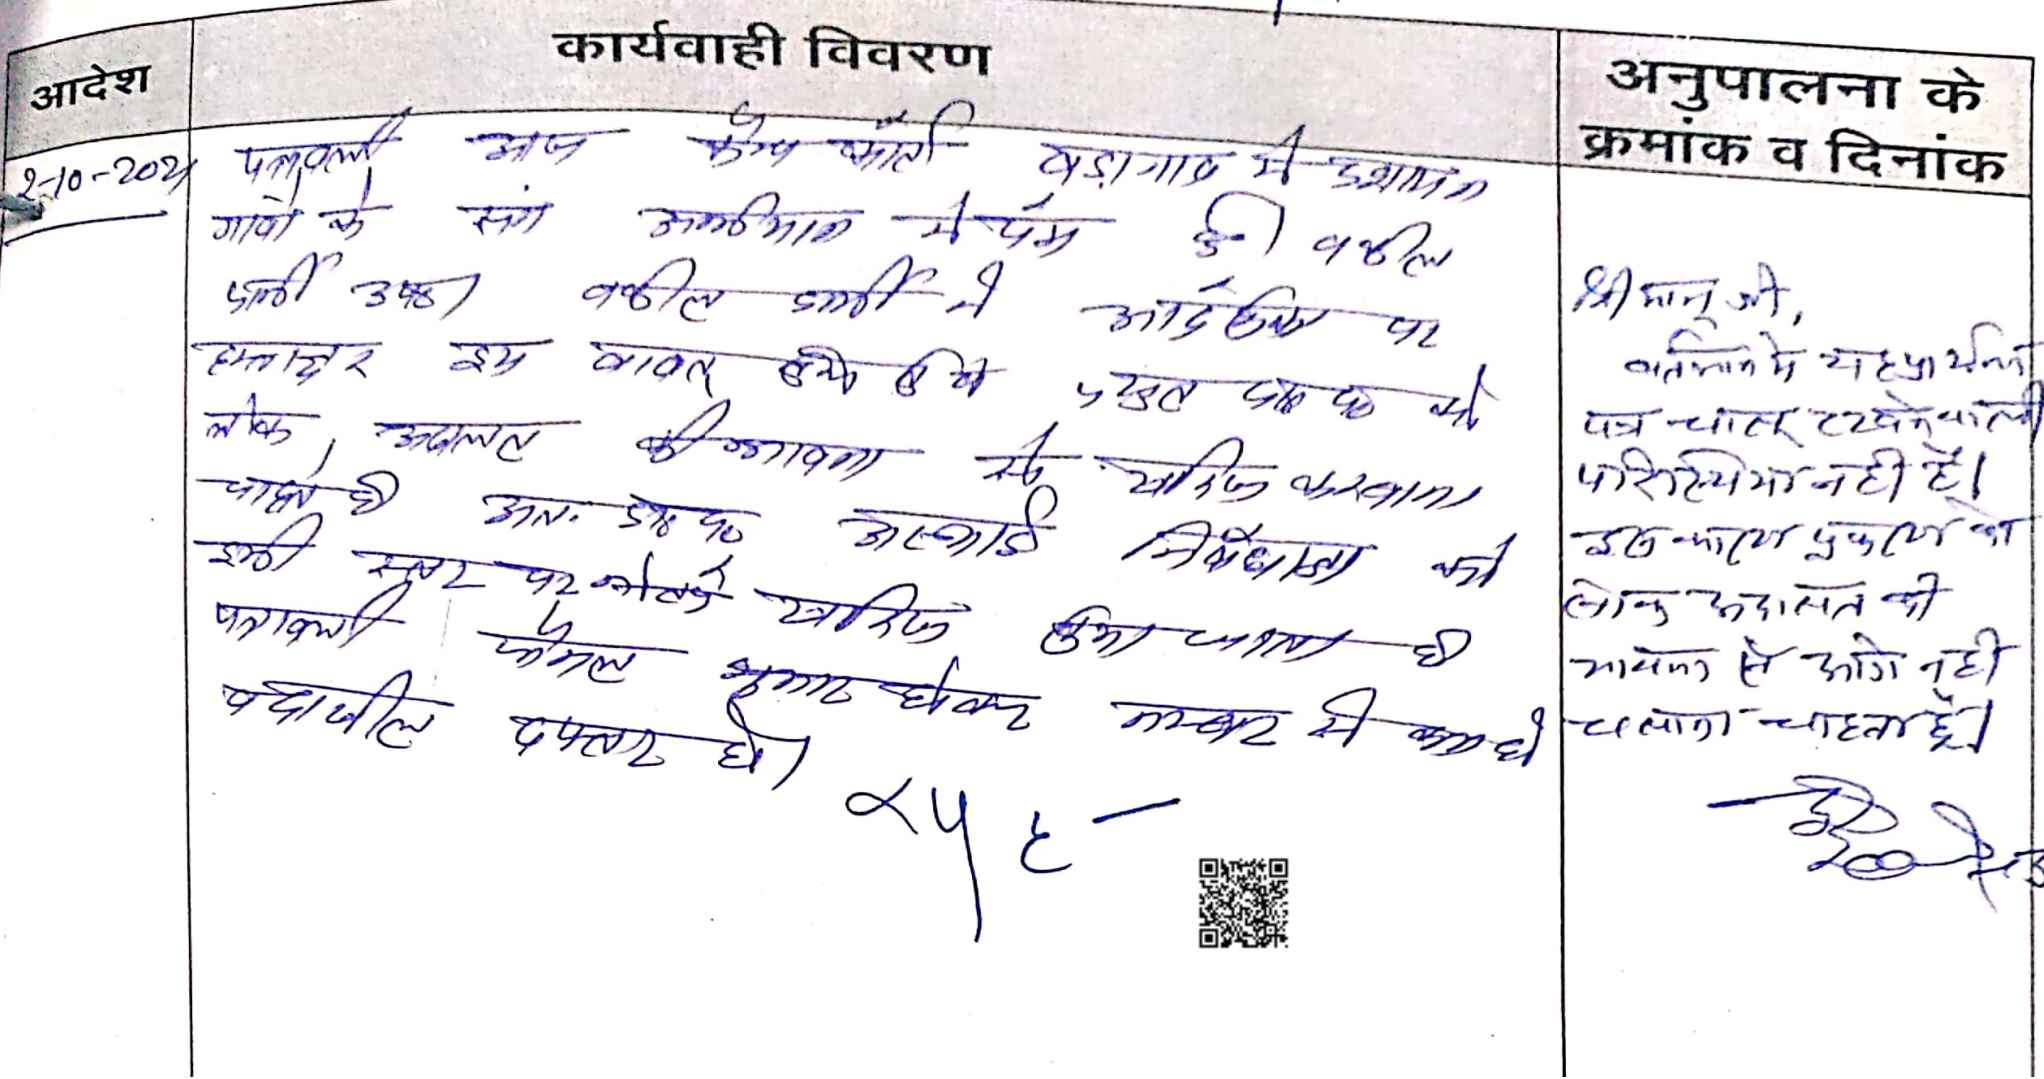 आदेश
कार्यवाही विवरण
अनुपालना के
क्रमांक व दिनांक
2-10-2021
पत्रावली आज कैम्प कोर्ट बड़ागांव में प्रशासन
गांवों के संग अभियान में पेश हुई। वकील
प्रार्थी उप०। वकील प्रार्थी ने आर्डरशीट पर
हस्ताक्षर इस बाबत् किये कि प्रस्तुत प्रा० प० को
लोक अदालत की भावना से खारिज करवाना
चाहते है अतः प्रा० प० अस्थाई निषेधाज्ञा को
इसी स्तर पर खारिज किया जाता है
पत्रावली फैसल शुमार होकर नम्बर से कम हो
दाखील दफ्तर हो।
श्रीमान् जी,
वर्तमान में यह प्रार्थना
पत्र चालू रखने वाली
परिस्थियां नही है।
इस कारण प्रकरण को
लोक अदालत की
भावना से आगे नही
चलाना चाहता हूँ।